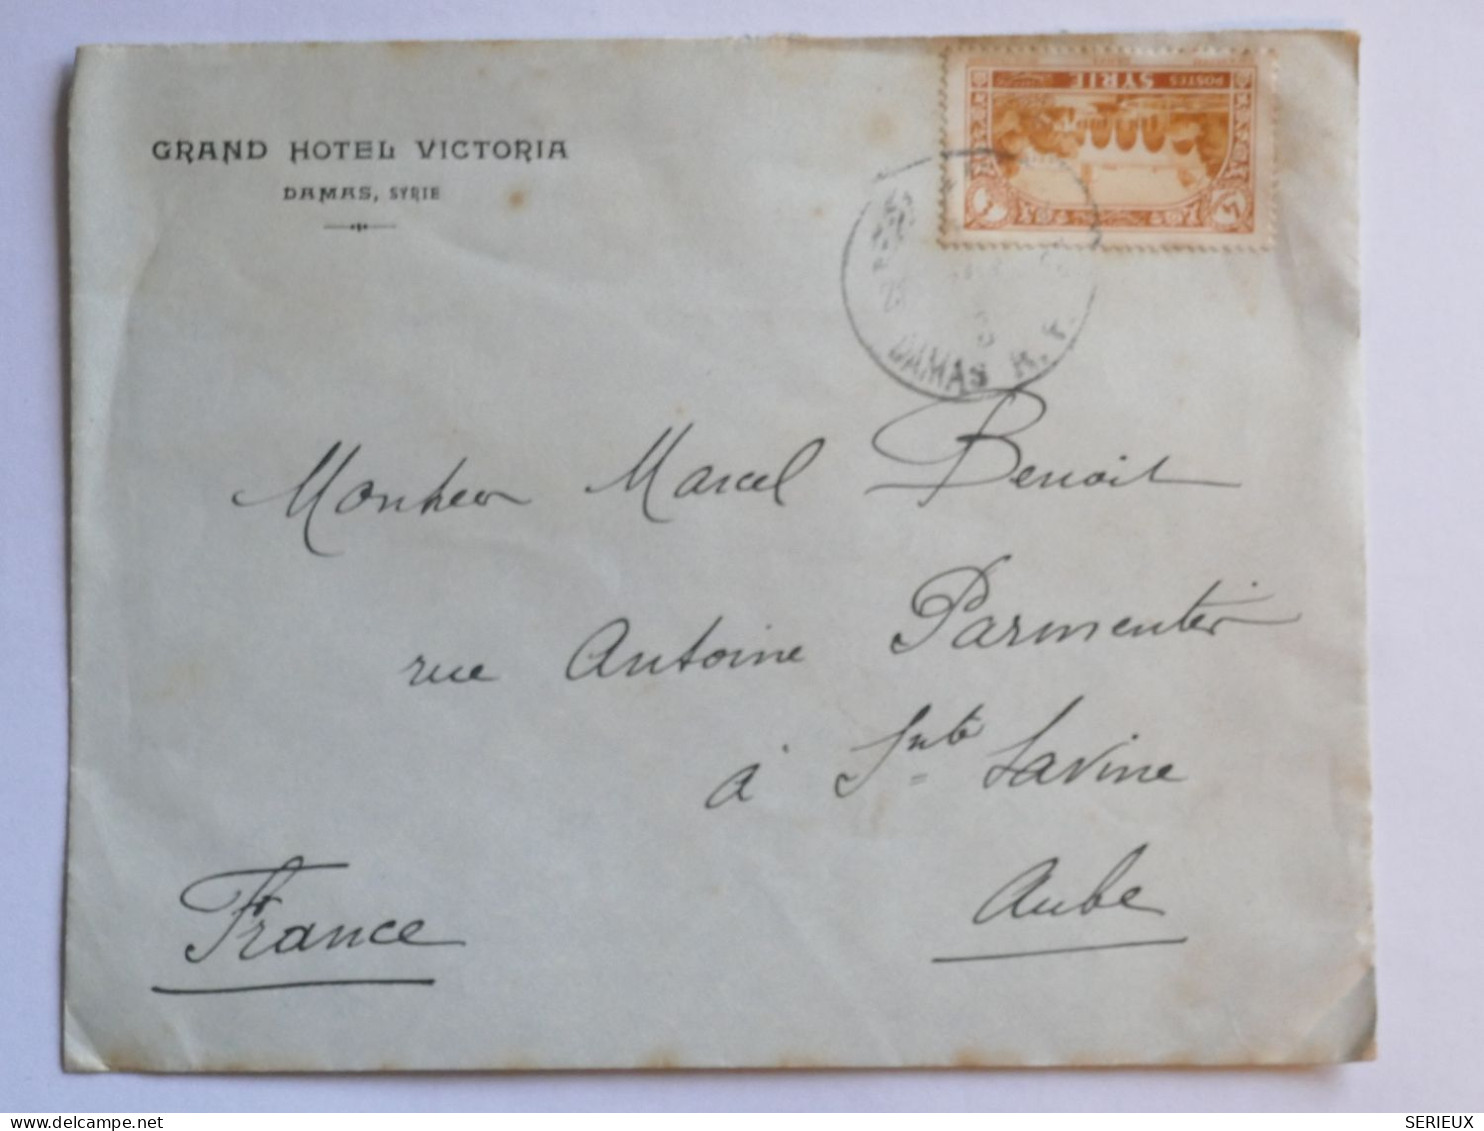 GRAND HOTEL VICTORIA
DAMAS, SYRIE
POSTES SYRIE
DAMAS R.P.
Monsieur Marcel Benoit
rue Antoine Parmentier
à Snte Savine
Aube
France
SERIEUX